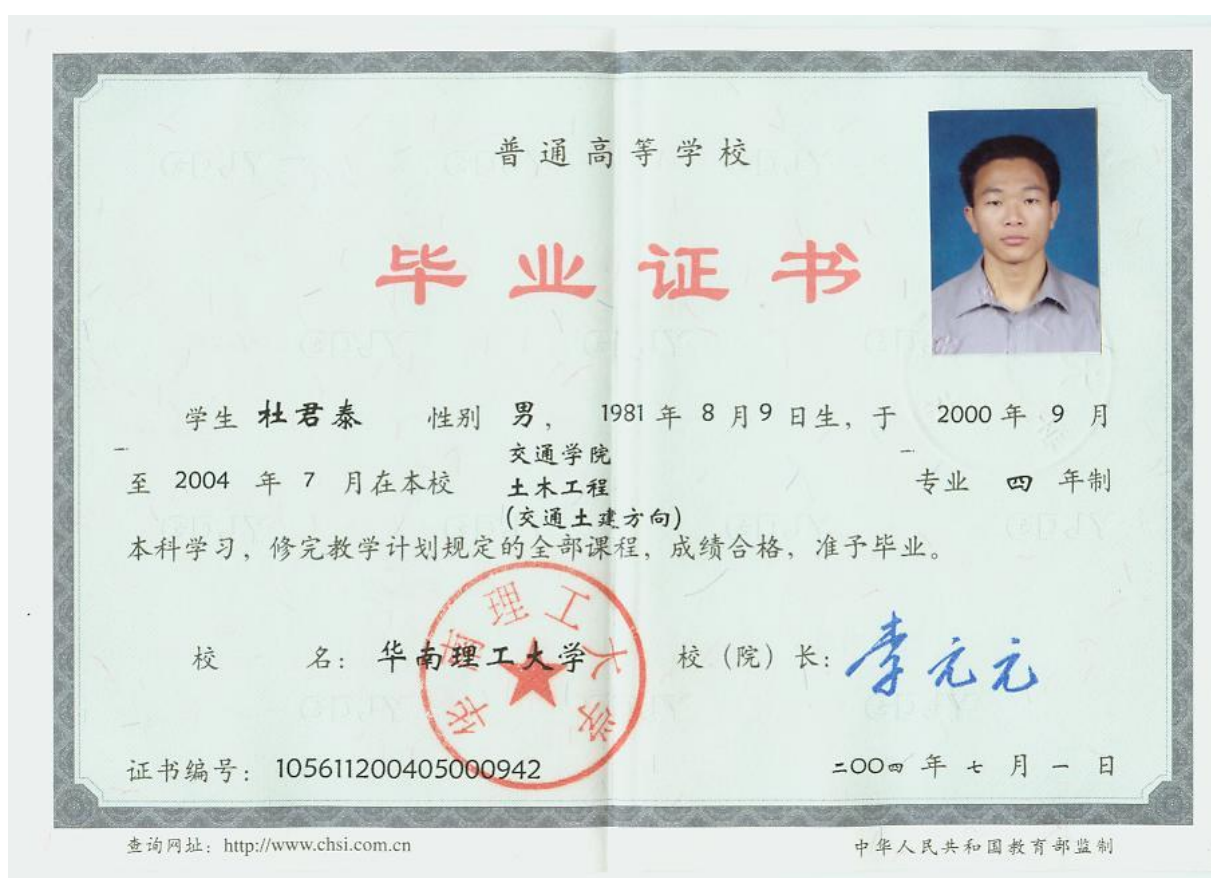 普通高等学校
毕业证书
学生 杜君泰 性别 男， 1981 年 8 月 9 日生，于 2000 年 9 月
交通学院
至 2004 年 7 月在本校 土木工程 专业 四 年制
(交通土建方向)
本科学习，修完教学计划规定的全部课程，成绩合格，准予毕业。
华南理工大学
校 名：华南理工大学 校（院）长：李元元
证书编号：105611200405000942 二〇〇四年七月一日
查询网址：http://www.chsi.com.cn 中华人民共和国教育部监制